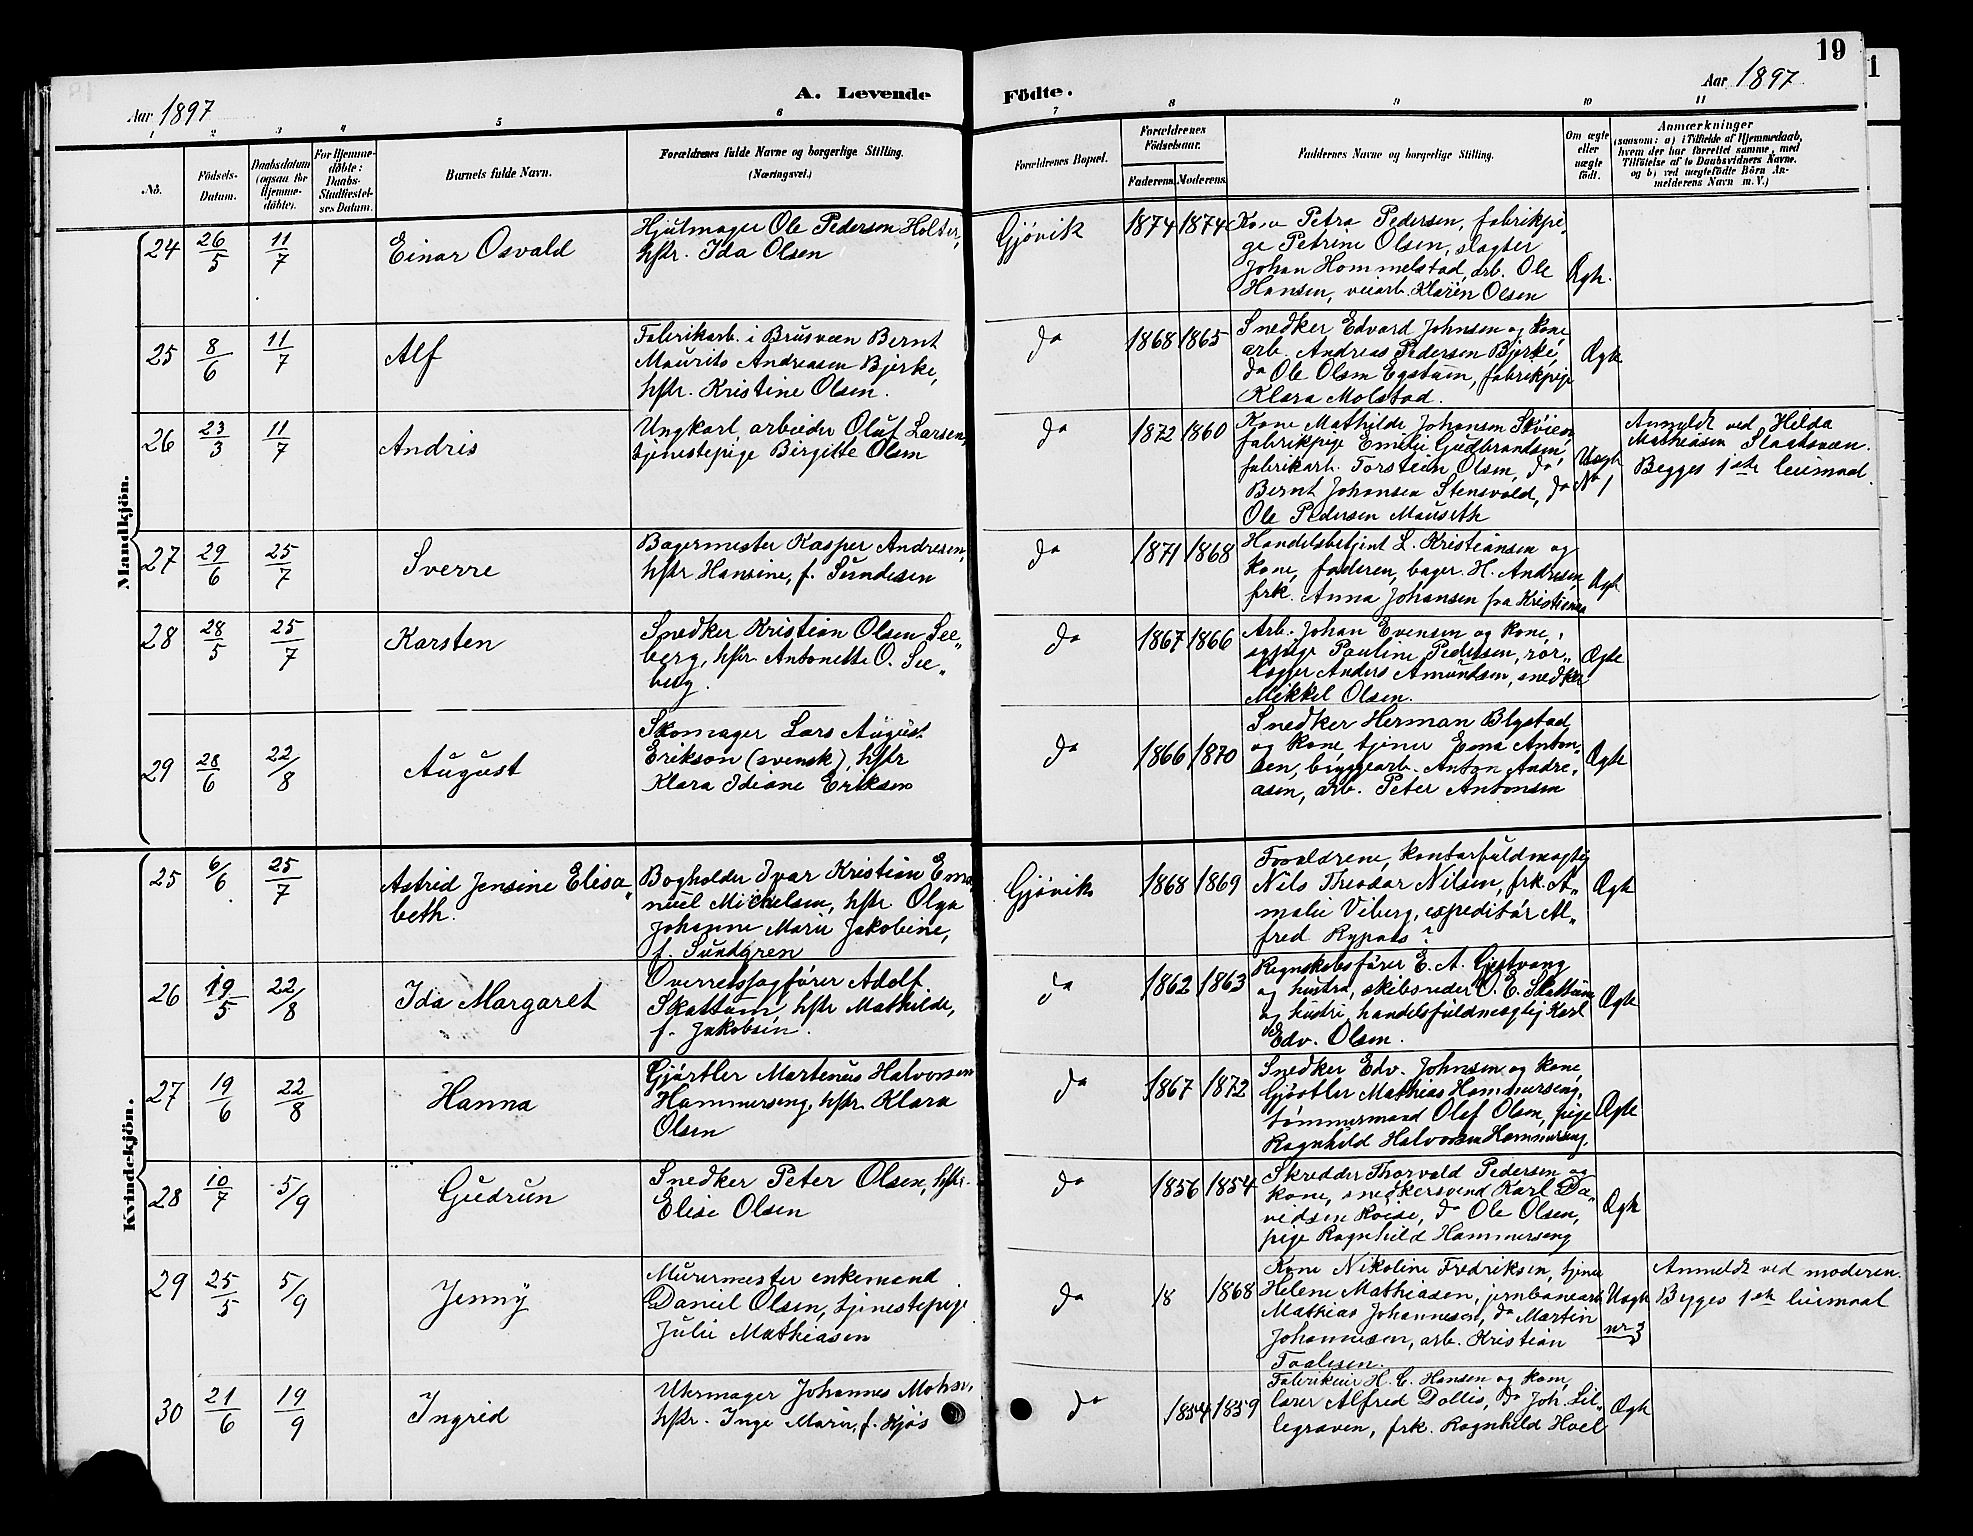 19
Aar 1897
A. Levende Födte.
Aar 1897
1 2 3 4 5 6 7 8 9 10 11
No.
Födsels-Datum.
Daabsdatum (ogsaa for Hjemmedöbte).
For Hjemmedöbte: Daabs-Stadfæstelses Datum.
Barnets fulde Navn.
Forældrenes fulde Navne og borgerlige Stilling. (Næringsvei.)
Forældrenes Bopæl.
Forældrenes Födselsaar.
Faderens. Moderens.
Faddernes Navne og borgerlige Stilling.
Om ægte eller uægte födt.
Anmærkninger
(saasom: a) i Tilfælde af Hjemmedaab, hvem der har forrettet samme, med Tilföielse af to Daabsvidners Navne. og b) ved uægtefödte Börn Anmelderens Navn m. V.)
Mandkjön.
24 26/5 11/7 Einar Osvald
Hjulmager Ole Pedersen Holter,
hstr. Ida Olsen
Gjövik 1874 1874
Kone Petra Pedersen, fabrikpi„
ge Petrine Olsen, slagter
Johan Hommelstad, arb. Ole
Hansen, veiarb. Klaren Olsen
Ægte.
25 8/6 11/7 Alf
Fabrikarb. i Brusveen Bernt
Maurits Andreasen Bjerke,
hstr. Kristine Olsen.
do 1868 1865
Snedker Edvard Johnsen og kone,
arb. Andreas Pedersen Bjerke,
do Ole Olsen Egstuen, fabrikpige
Klara Molstad.
Ægte
26 23/3 11/7 Andris
Ungkarl arbeider Oluf Larsen,
tjenestepige Birgitte Olsen
do 1872 1860
Kone Mathilde Johansen Skøien,
fabrikpige Emilie Gudbrandsen,
fabrikarb. Torstein Olsen, do
Bernt Johansen Stensvold, do
Ole Pedersen Mauseth
Uægte No 1
Anmeldt ved Hilda
Mathiasen Slaatsveen.
Begges 1ste leiermaal.
27 29/6 25/7 Sverre
Bagermester Kasper Andresen,
hstr Hansine, f. Sundesen
do 1871 1868
Handelsbetjent L. Kristiansen og
kone, faderen, bager H. Andresen,
frk. Anna Johansen fra Kristiania
Ægte
28 28/5 25/7 Karsten
Snedker Kristian Olsen See„
berg, hstr. Antonette O. See„
berg.
do 1867 1866
Arb. Johan Evensen og kone,
sypige Pauline Pedersen, rör„
lægger Anders Amundsen, snedker
Mikkel Olsen.
Ægte
29 28/6 22/8 August
Skomager Lars August
Erikson (svensk), hstr
Klara Idiane Eriksen
do 1866 1870
Snedker Herman Blystad
og kone, tjener Anton„
sen, byggearb. Anton Andre„
asen, arb. Peter Antonsen
Ægte
Kvindekjön.
25 6/6 25/7 Astrid Jensine Elisa„
beth.
Bogholder Ivar Kristian Ema„
nuel Mickelsen, hstr Olga
Johanne Marie Jakobine,
f. Sundgren
Gjövik 1868 1869
Forældrene, kontorfuldmægtig
Nils Theodor Nilsen, frk. A„
malie Viberg, expeditör Al„
fred Rypaas?
Ægte
26 19/5 22/8 Ida Margaret
Overretssagförer Adolf
Skattum, hstr Mathilde,
f. Jakobsen.
do 1862 1863
Regnskabsförer E. A. Gjestvang
og hustru, skibsreder O. E. Skattum
og hustru, handelsfuldmægtig Karl
Edv. Olsen.
Ægte
27 19/6 22/8 Hanna
Gjörtler Martenus Halvorsen
Hammerseng, hstr. Klara
Olsen
do 1867 1872
Snedker Edv. Johnsen og kone,
Gjörtler Mathias Hammerseng,
tömmermand Olaf Olsen, pige
Ragnhild Halvorsen Hammerseng.
Ægte
28 10/7 5/9 Gudrun
Snedker Peter Olsen, hstr.
Elise Olsen
do 1856 1854
Skrædder Thorvald Pedersen og
kone, snedkersvend Karl Da„
vidsen Roise, do Ole Olsen,
pige Ragnhild Hammerseng
Ægte
29 25/5 5/9 Jenny
Murermester enkemand
Daniel Olsen, tjenestepige
Julie Mathiasen
do 18 1868
Kone Nikoline Fredriksen, tjener
Helene Mathiasen, jernbanearb.
Mathias Johannesen, do Martin
Johannesen, arb. Kristian
Taalesen.
Uægte nr 3
Anmeldt ved moderen.
Begges 1ste leiermaal
30 21/6 19/9 Ingrid
Uhrmager Johannes Mohn,
hstr. Inge Marie, f. Kjös
do 1854 1859
Fabrikeier H. C. Hansen og kone,
lærer Alfred Dallis, do Joh. Lil„
legraven, frk. Ragnhild Hoel
Ægte